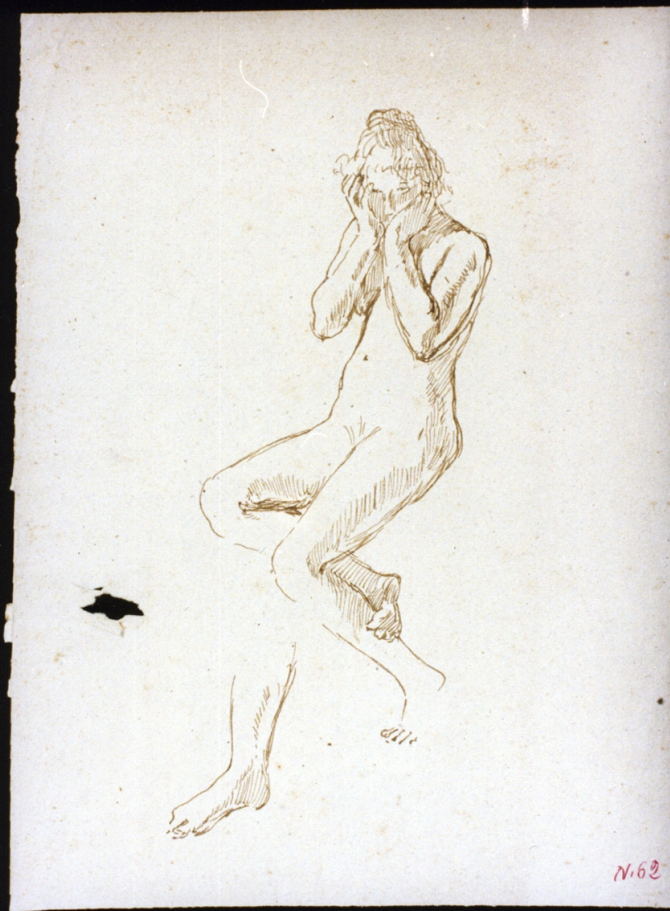 N. 62